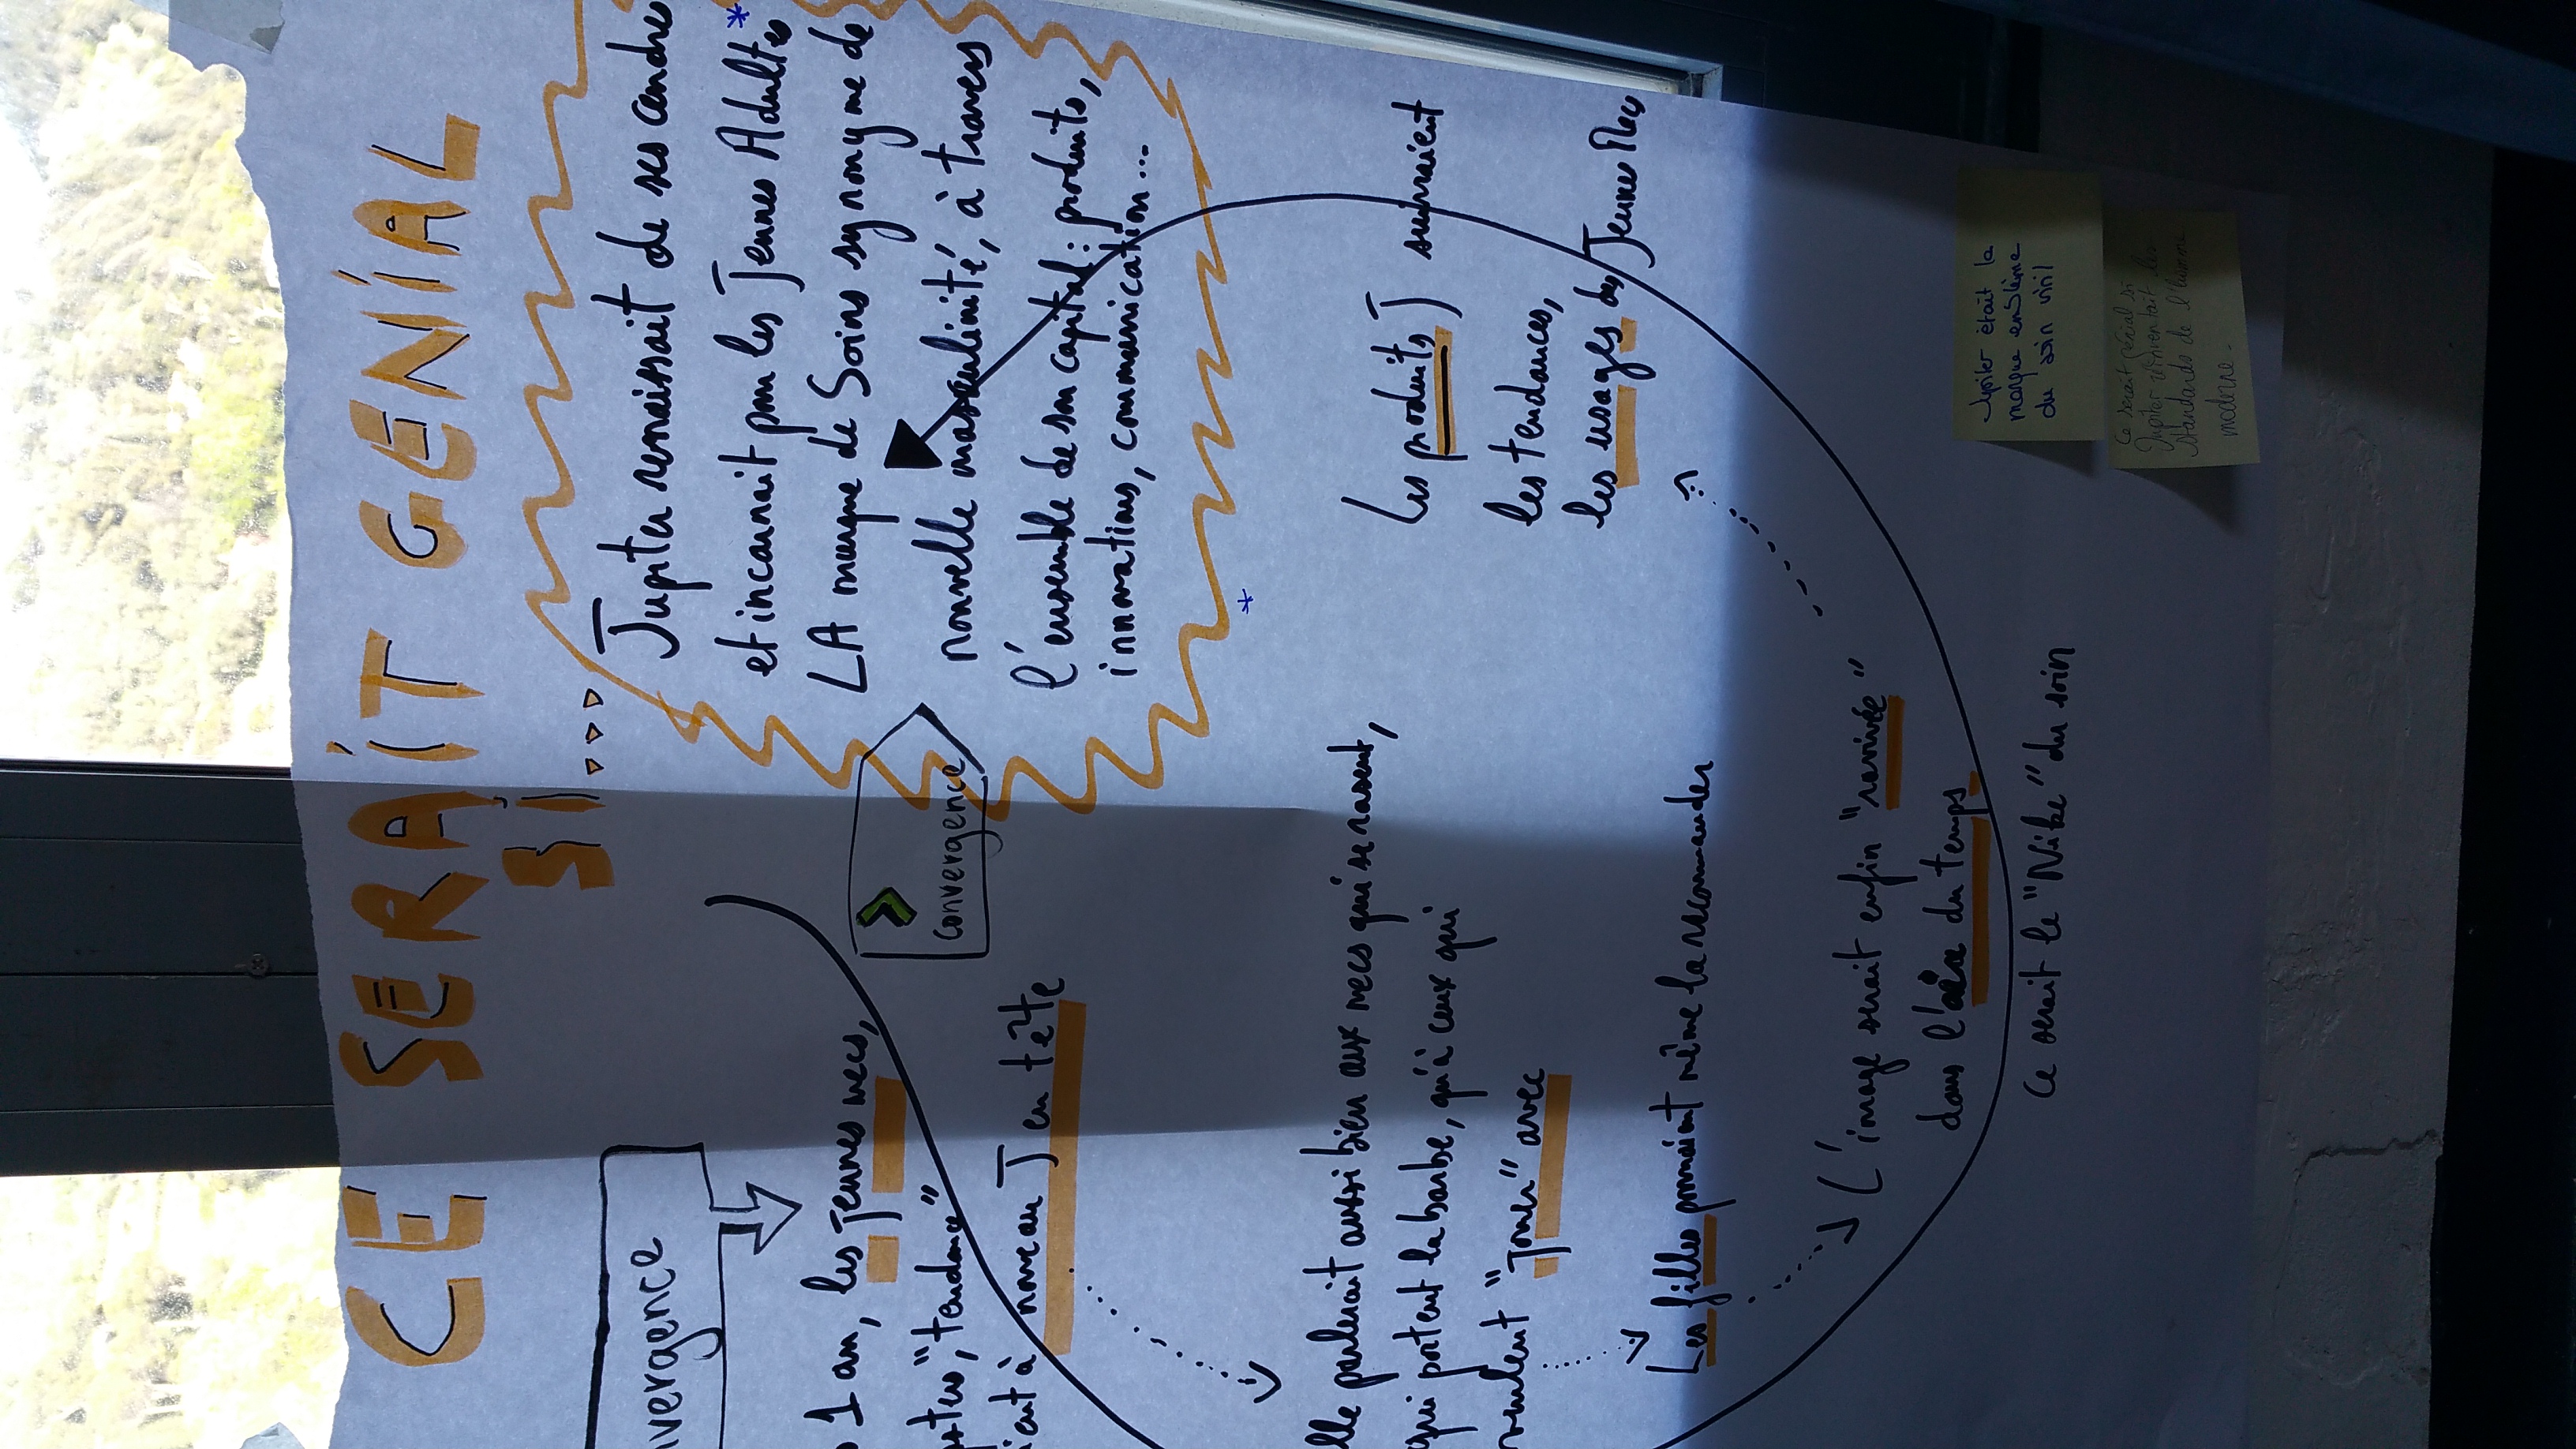 CE SERAIT GENIAL
SI...
vergence
1 an, les Jeunes mecs,
"tendance"
à nouveau J en tête
Convergence
Jupiter renaissait de ses cendres
et incarnait pour les Jeunes Adultes*
LA marque de Soins synonyme de
nouvelle masculinité, à travers
l'ensemble de son capital : produits,
innovations, communication...
*
lle parlerait aussi bien aux mecs qui se rasent,
qui portent la barbe, qu'à ceux qui
veulent "Jouer" avec
Les filles pourraient même la recommander
L'image serait enfin "ravivée"
dans l'air du temps
Ce serait le "Nike" du soin
Les produits J suivraient
les tendances,
les usages des Jeunes Mecs
Jupiter était la
marque emblème
du soin viril
Ce serait génial si
Jupiter réinventait les
standards de l'homme
moderne.